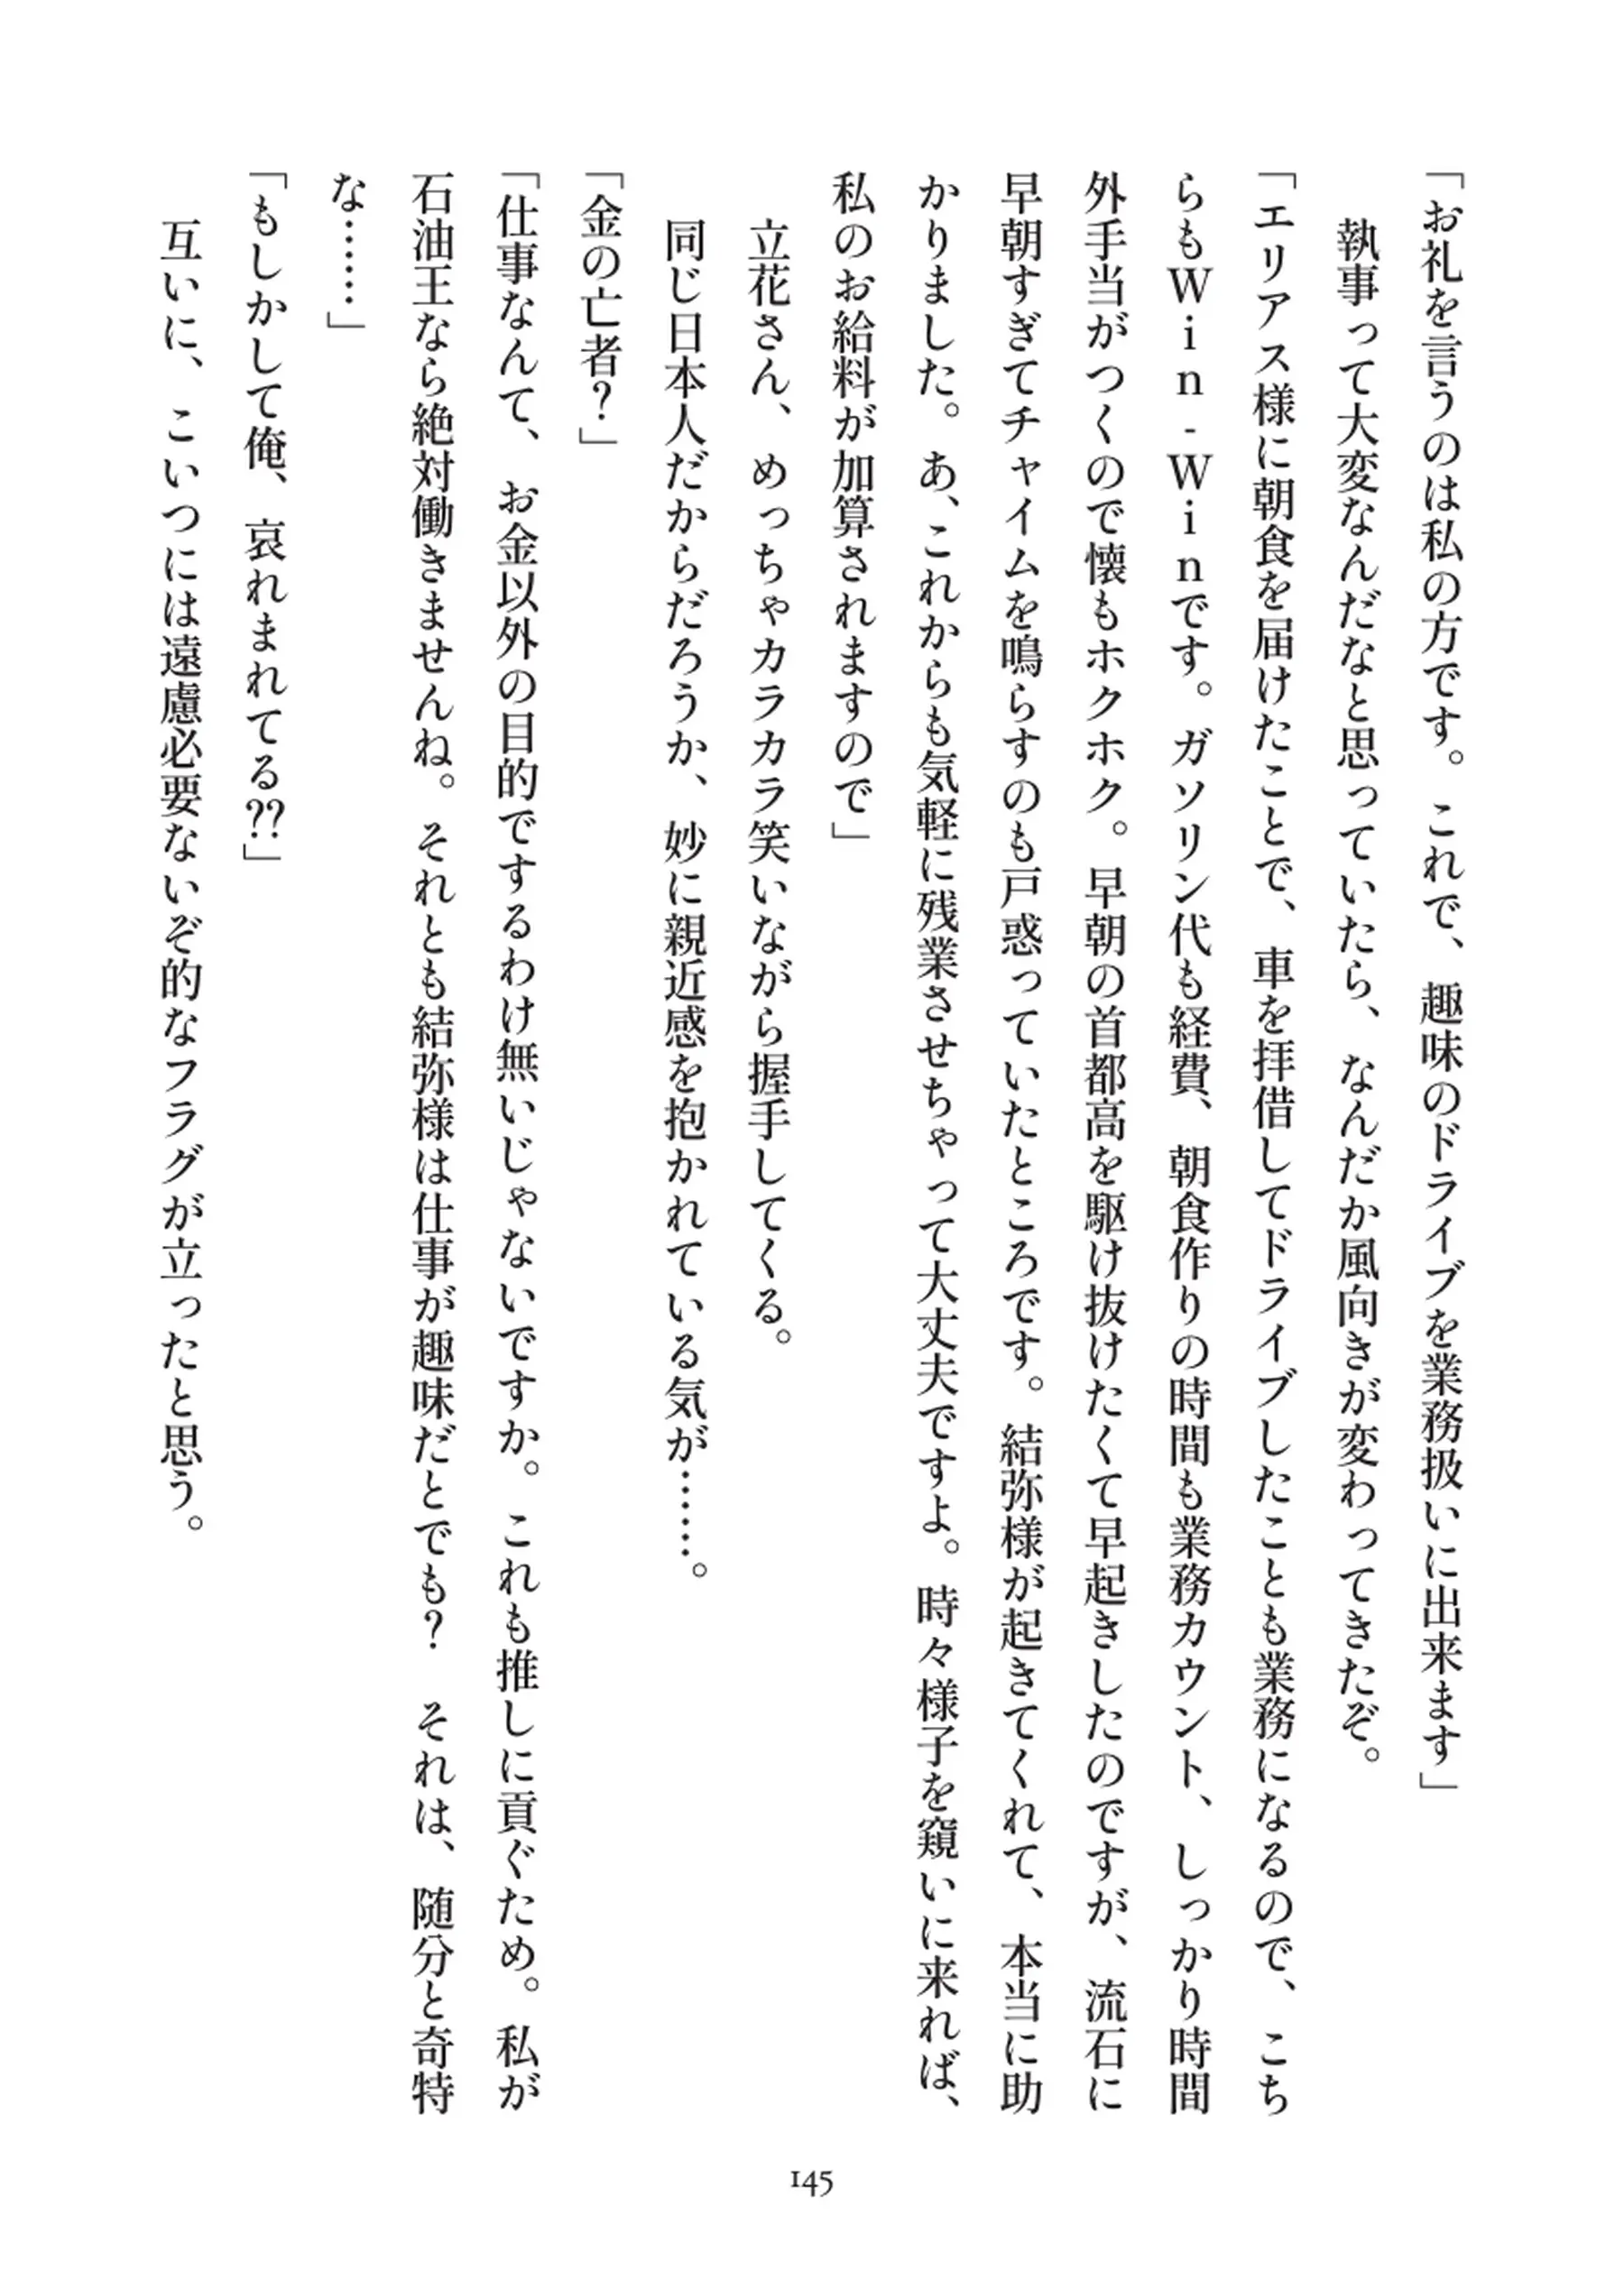 「お礼を言うのは私の方です。これで、趣味のドライブを業務扱いに出来ます」
　執事って大変なんだなと思っていたら、なんだか風向きが変わってきたぞ。
「エリアス様に朝食を届けたことで、車を拝借してドライブしたことも業務になるので、こち
らもＷｉｎ‐Ｗｉｎです。ガソリン代も経費、朝食作りの時間も業務カウント、しっかり時間
外手当がつくので懐もホクホク。早朝の首都高を駆け抜けたくて早起きしたのですが、流石に
早朝すぎてチャイムを鳴らすのも戸惑っていたところです。結弥様が起きてくれて、本当に助
かりました。あ、これからも気軽に残業させちゃって大丈夫ですよ。時々様子を窺いに来れば、
私のお給料が加算されますので」
　立花さん、めっちゃカラカラ笑いながら握手してくる。
　同じ日本人だからだろうか、妙に親近感を抱かれている気が……。
「金の亡者？」
「仕事なんて、お金以外の目的でするわけ無いじゃないですか。これも推しに貢ぐため。私が
石油王なら絶対働きませんね。それとも結弥様は仕事が趣味だとでも？　それは、随分と奇特
な……」
「もしかして俺、哀れまれてる⁇」
　互いに、こいつには遠慮必要ないぞ的なフラグが立ったと思う。
145